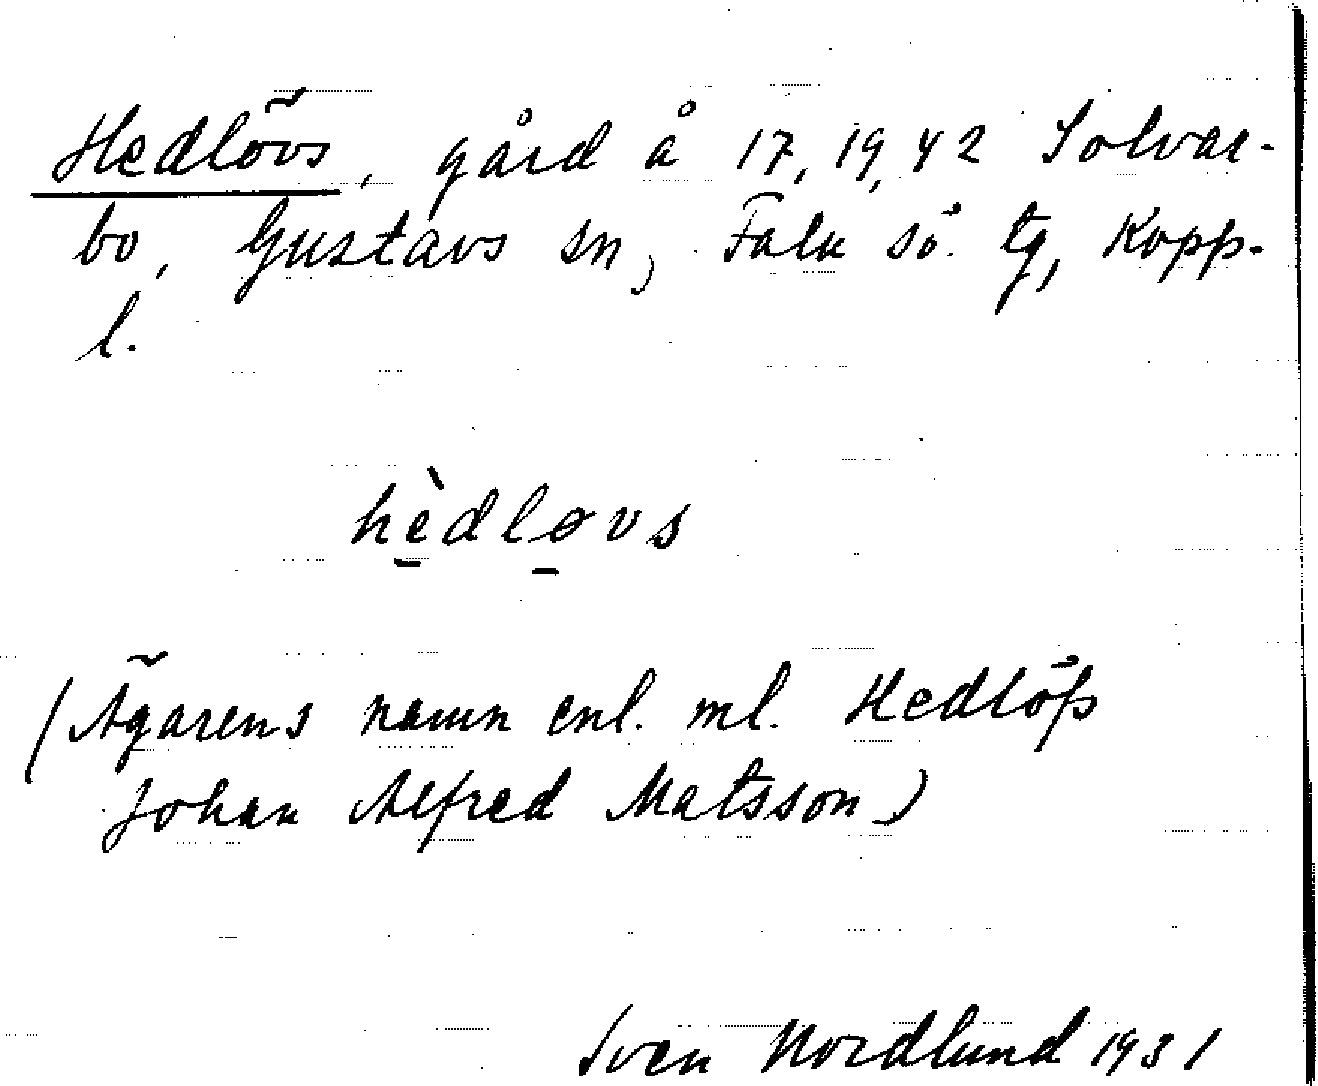 Hedlövs, gård å 17, 19, 42 Solvar-
bo, Gustavs sn, Falu sö. tg, Kopp.
l.
hèdløvs
(Ägarens namn enl. ml. Hedlöfs
Johan Alfred Matsson)
Sven Nordlund 1931